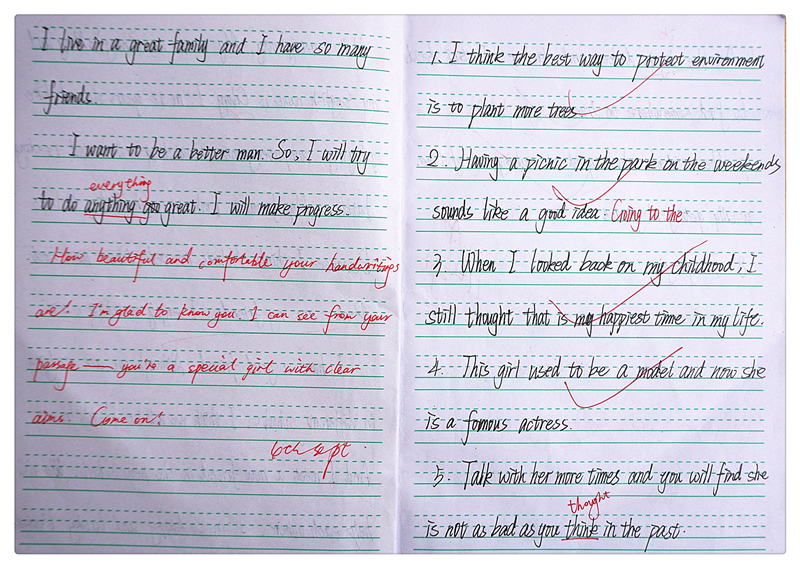 I live in a great family and I have so many
friends.
I want to be a better man. So, I will try
everything
to do anything great. I will make progress.
How beautiful and comfortable your handwritings
are! I'm glad to know you. I can see from your
passage — you're a special girl with clear
aims. Come on!
6th sept.
1. I think the best way to protect environment
is to plant more trees
2. Having a picnic in the park on the weekends
sounds like a good idea. Going to the
3. When I looked back on my childhood, I
still thought that is my happiest time in my life.
4. This girl used to be a model and now she
is a fomous actress.
5. Talk with her more times and you will find she
thought
is not as bad as you think in the past.